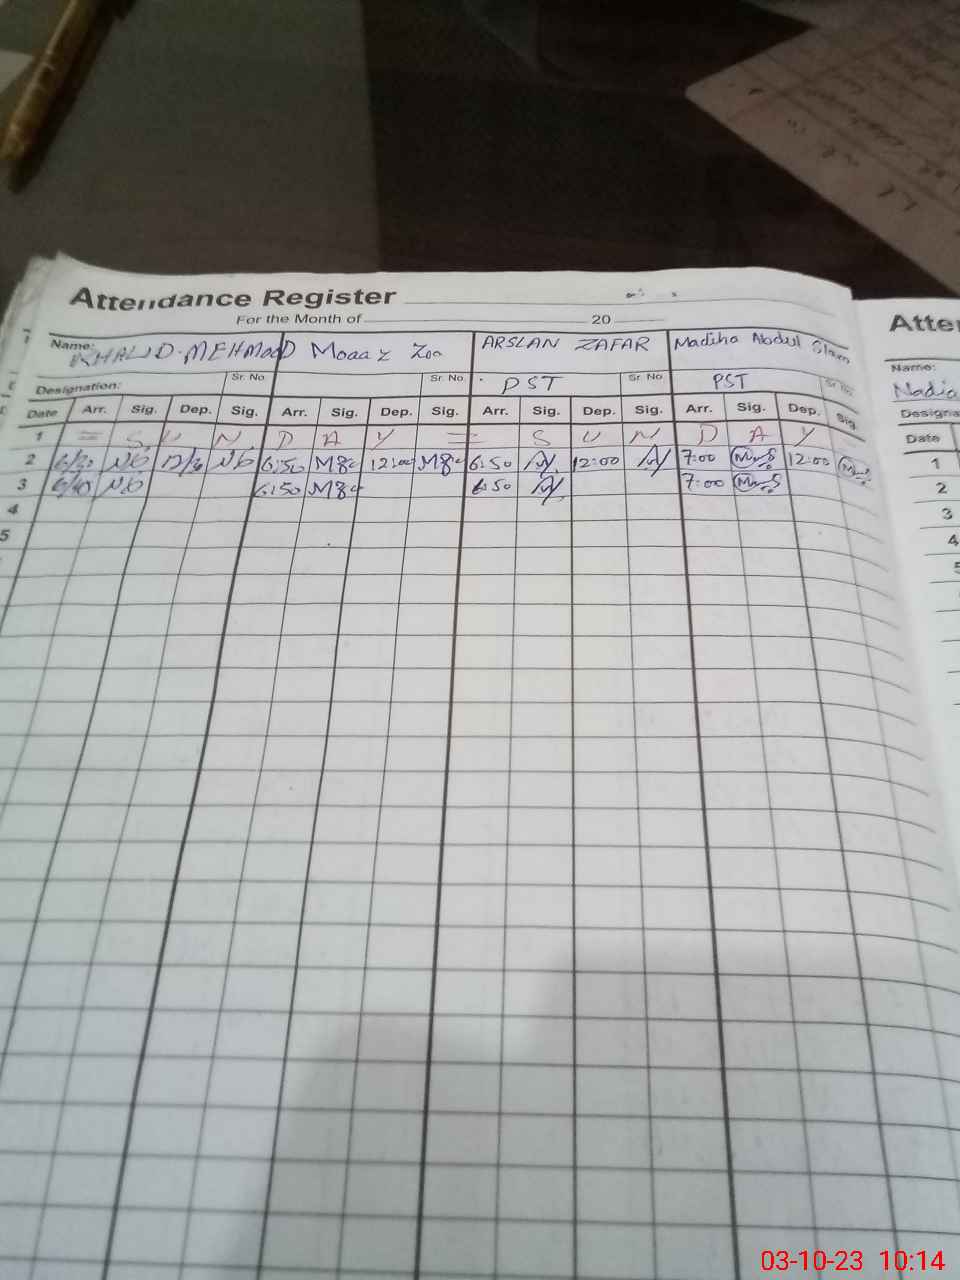 Attendance Register
For the Month of 20
Name: KHALID MEHMOOD Moaaz Zoa ARSLAN ZAFAR Madiha Abdul Slam
Designation: Sr. No. Sr. No. PST Sr. No. PST Sr. No.
Date Arr. Sig. Dep. Sig. Arr. Sig. Dep. Sig. Arr. Sig. Dep. Sig. Arr. Sig. Dep. Sig.
1 = S U N D A Y = S U N D A Y
2 6/30 12/30 6:50 12:00 6:50 12:00 7:00 12:00
3 6/40 6:50 6:50 7:00
4
5
Atte
Name:
Nadia
Designa
Date
1
2
3
4
5
03-10-23 10:14